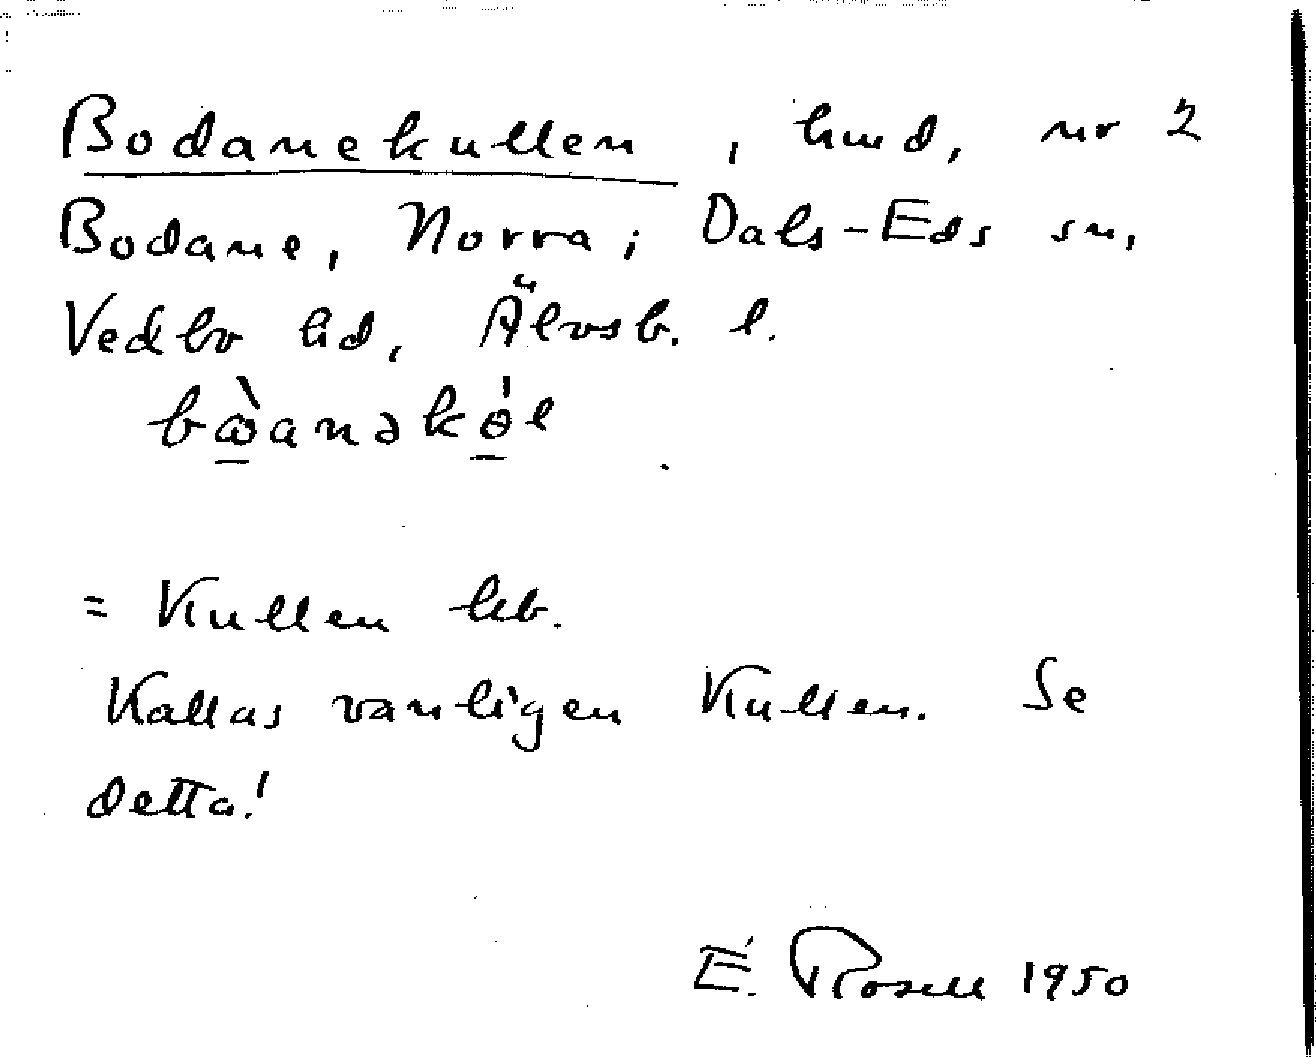 Bodanekullen, hmd, nr 2
Bodane, Norra; Dals-Eds sn,
Vedbo hd, Älvsb. l.
bὼanəkɵ́l
= Kullen kb.
Kallas vanligen Kullen. Se
detta!
E. Rosell 1950